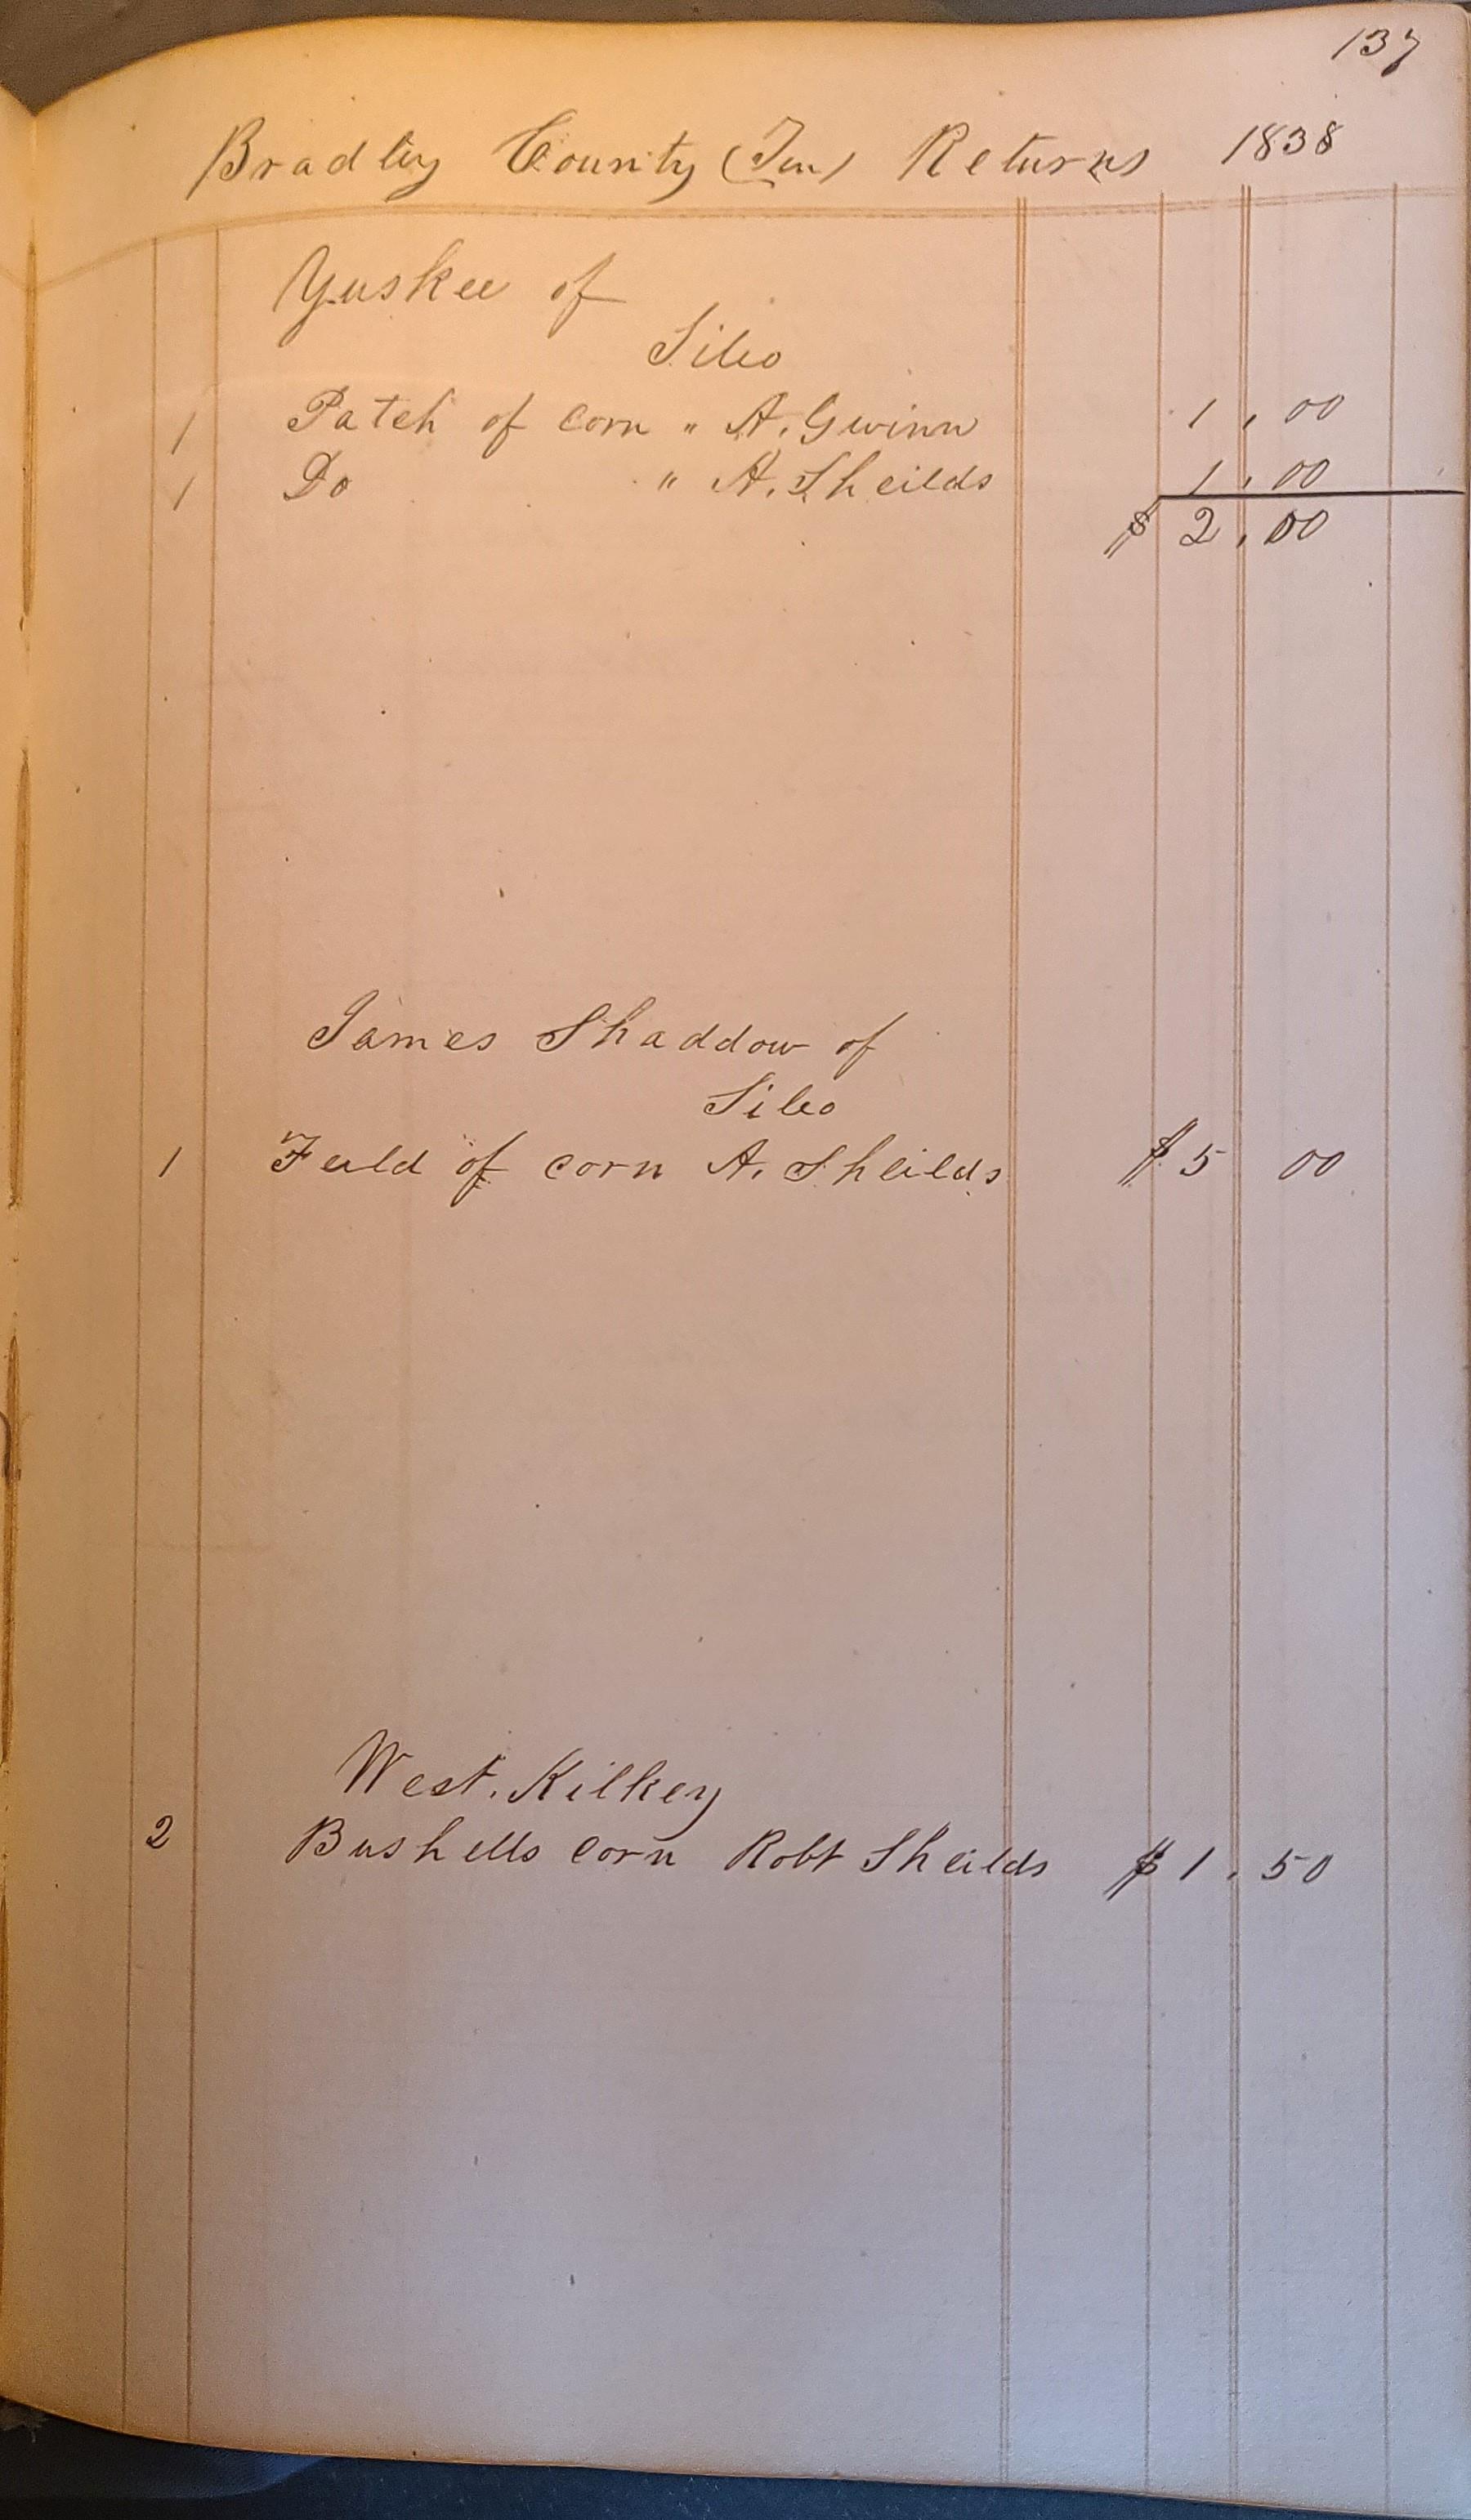 137
Bradley County (Ten) Returns 1838
Yuskee of
Sileo
1 Patch of corn " A. Gwinn 1.00
1 Do " A. Sheilds 1.00
$ 2.00
James Shaddow of
Sileo
1 Feild of corn A. Sheilds $5 00
West. Kilkey
2 Bushells corn Robt Sheilds $1.50